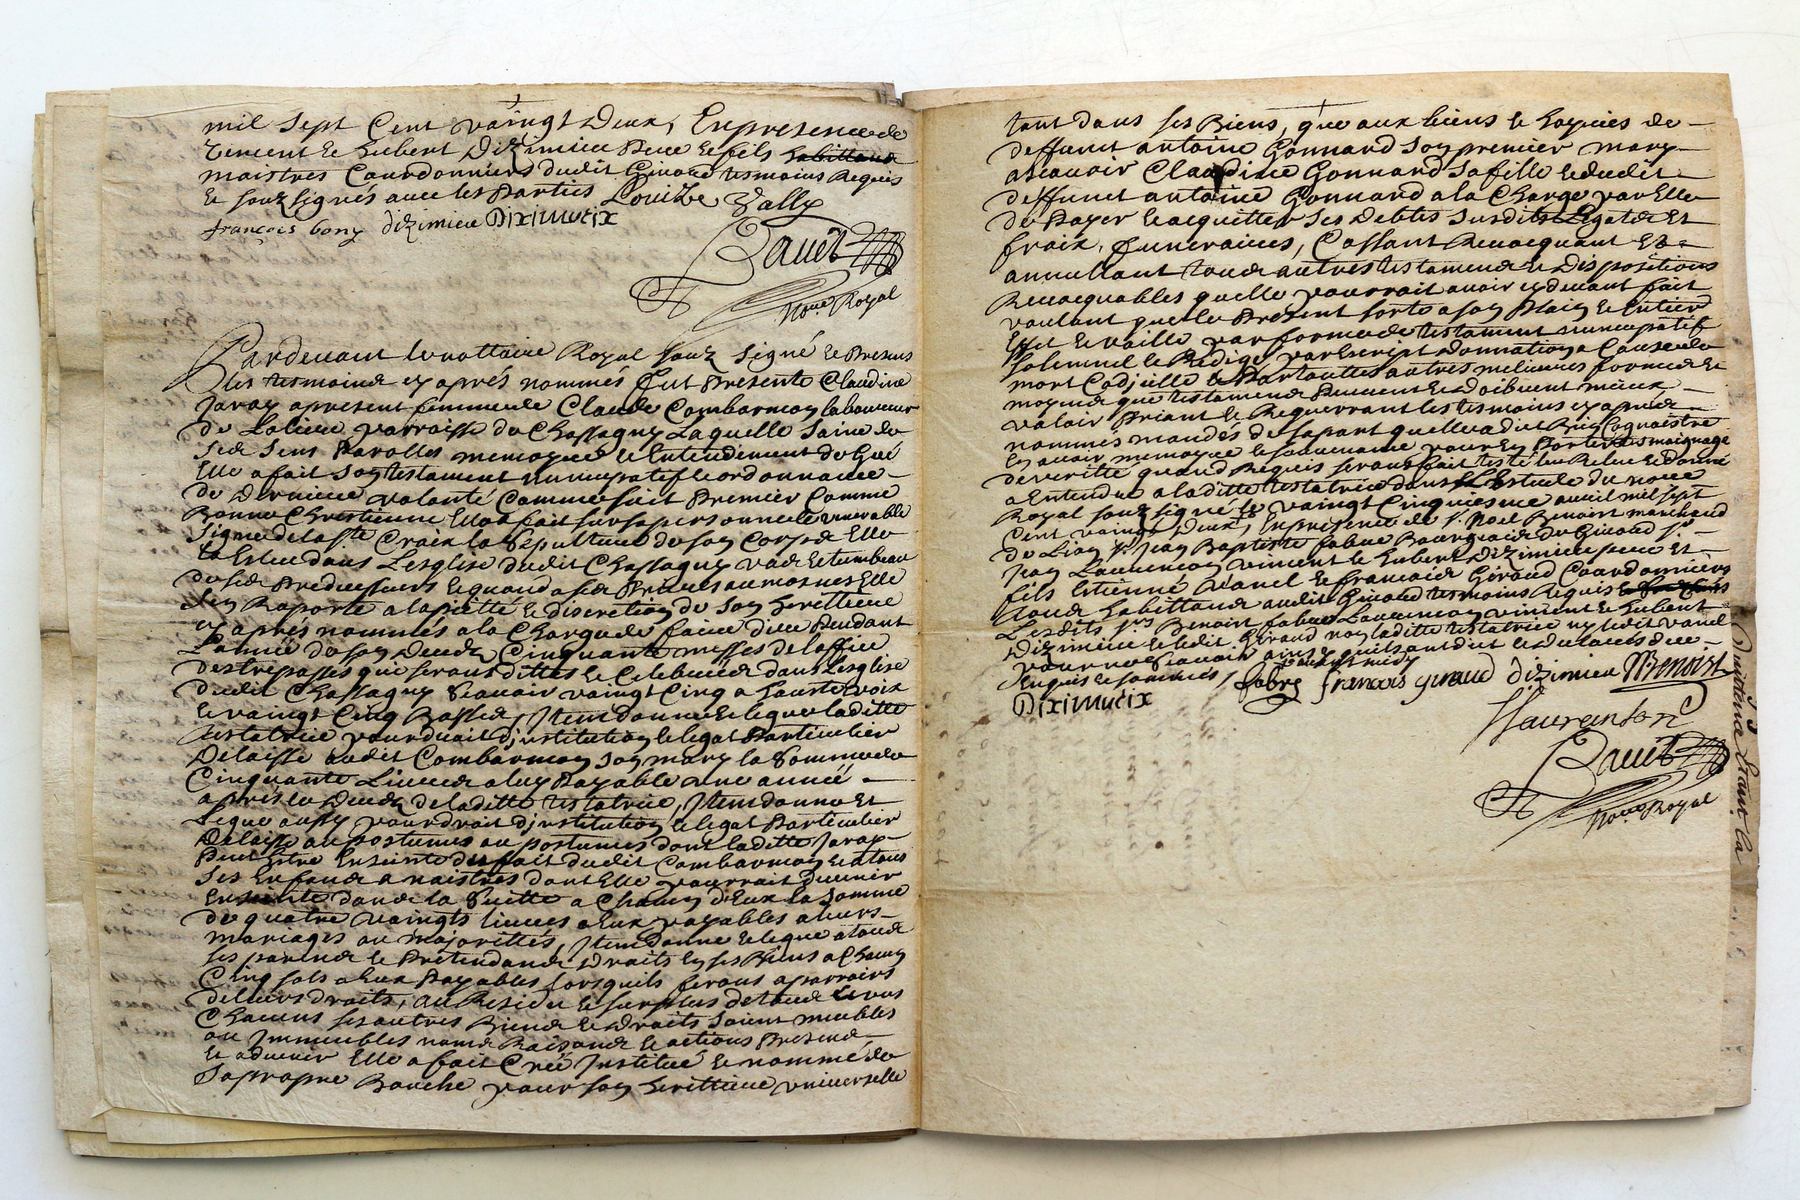 mil sept Cent vaingt Deux, En presence de
vincent & hubert Dizimieu Pere & fils habittand
maistres Courdonniers dudit Givord tesmoins Requis
& souz signés avec les Parties Louize Vally
françois bony dizimieu Diximieix
Pavet
No.re Royal
Pardevant le nottaire Royal souz signé & Presens
les tesmoins cy aprés nommés fut Presente Claudine
Jaray apresent femme de Claude Combarmon laboureur
de parroisse de Chassagny Laquelle Saine de
ses Sens Parolles memoyre & Entendement de gré
Elle a fait son testament nuncupatif & ordonnance
de Derniere volonté Comme suit Premier Comme
Bonne Chrestienne Elle a fait sur sa personne le venerable
Signe de la ste Croix la Sepulture de son Corps Elle
la Esleu dans L'esglise dudit Chassagny vas & tumbeau
de ses Predecesseurs & quand a ses Prieres aumosnes Elle
sen Raporte a la pieté & discretion de son herittiere
cy aprés nommés a la Charge de faire dire Pendant
L'année de son Deces Cinquante messes de L'office
des trepasses qui seront dittes & Celebrées dans L'esglise
dudit Chassagny scavoir vaingt Cinq a haute voix
& vaingt Cinq Basses, Item donne & legue laditte
testatrice pour droit d'institution & legat Particulier
Delaisse audit Combarmon son mary la Somme de
Cinquante Livres a luy Payable une année
aprés le Deces de laditte testatrice, Item donne Et
Legue aussy pour droit d'institution & legat Particulier
Delaisse au postume ou postumes dont laditte Jaray
Peut Estre Enceinte du fait dudit Combarmon & a tous
ses Enfans a naistres dont Elle pourrait Devenir
Enceinte dans la Suitte a Chacun d'Eux la somme
de quatre vaingts livres a Eux payables a leurs
mariages ou majorittés, Item donne & legue a tous
ses parens & Pretendans Droits En ses Biens a Chacun
Cinq sols a Eux Payables lorsquils feront aparroirs
de leurs droits, au Residu & surplus de tous & uns
Chacuns ses autres Biens & Droits soient meubles
ou Immeubles noms Raisons & actions Presens
& advenir Elle a fait Creé Institué & nommé de
Sa propre Bouche pour son herittiere universelle
tant dans ses Biens, que aux biens & hoyries de
deffunct antoine Gonnard son premier mary
ascavoir Claudine Gonnard sa fille & dudit
deffunct antoine Gonnard a la Charge par Elle
de Payer & acquitter ses Debtes susdits Legats Et
fraix funeraires, Cassant Revocquant Et
annullant tous autres testamens & Dispositions
Revocquables quelle pourroit avoir cy devant fait
voulant que le Present sorte a son Plain & Entier
Effet & vaille par forme de testament nuncupatif
solemnel & Redigé par Escript donnation a Cause de
mort Codicille & Partouttes autres melieures formes &
moyens que testamens Peuvent & doibvent mieux
valoir Priant & Requerrant les tesmoins cy aprés
nommés mandés de sa part quelle a dit Bien Cognoistre
En avoir memoyre & souvenance pour En Porter tesmoignage
de verité quand Requis seront fait leu Releu & donné
a Entendre a laditte testatrice dans L'Estude du no.re
Royal souz signé le vaingt Cinquiesme avril mil sept
Cent vaingt Deux, En presence de s.r Noel Benoist marchand
de Lion s.r Jean Baptiste fabre Bourgeois de Givord s.r
Jean Laurenson vincent & hubert Dizimieu pere Et
fils Estienne Vanel & francois Giroud Courdonniers
tous habittans audit Givord tesmoins Requis
Lesdits s.rs Benoist fabre Laurenson vincent & hubert
Dizimieu & ledit Giroud non laditte testatrice ny ledit vanel
pour ne scavoir ainsy quils ont dit & declaré de ce
Enquis & sommés
fabre francois giroud dizimieu NBenoist
Diximieix
JLaurenson
Pavet
No.re Royal